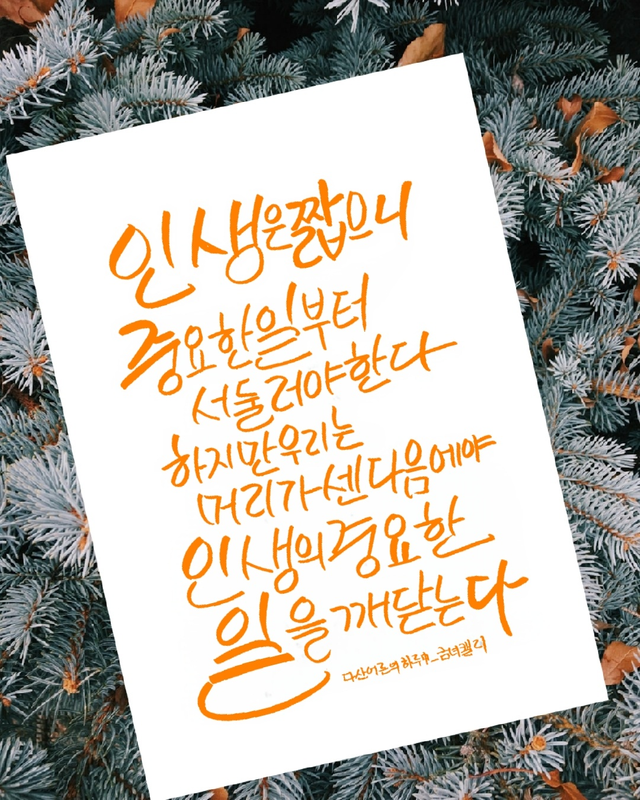 인생은짧으니
중요한일부터
서둘러야한다
하지만우리는
머리가센다음에야
인생의중요한
일을깨닫는다
다산어른의하루中_금녀캘리